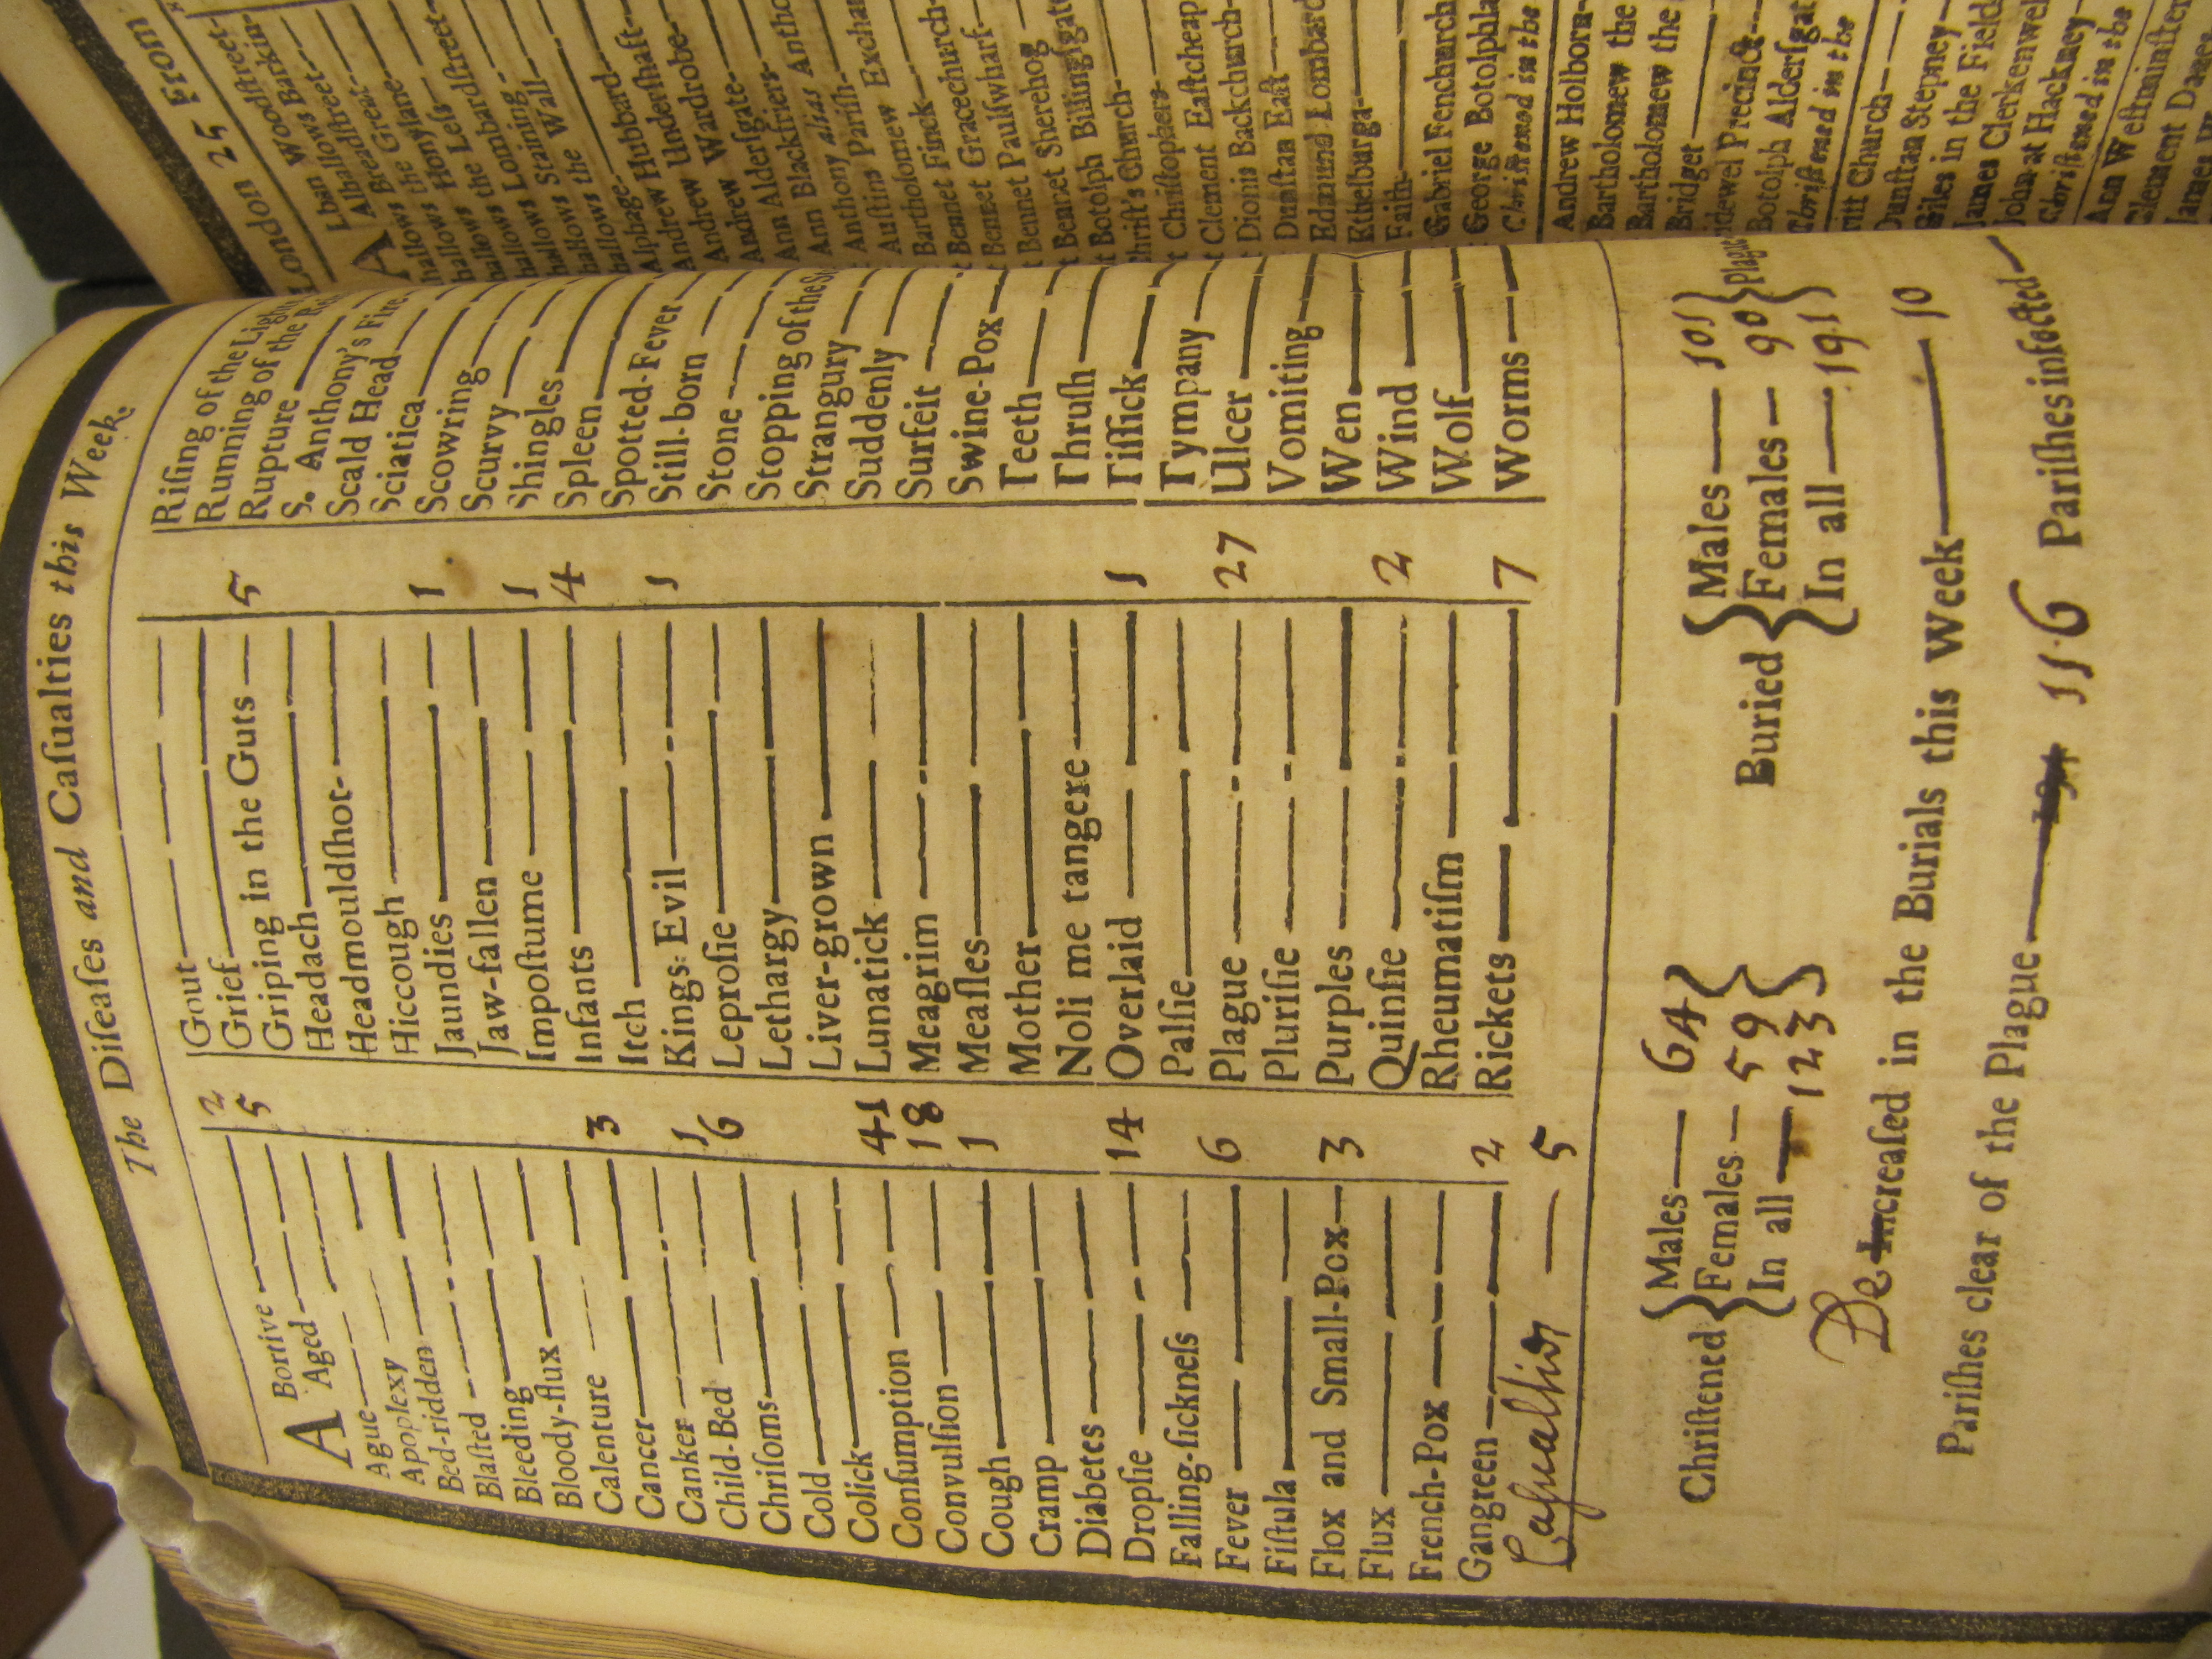 The Diſeaſes and Caſualties this Week.
ABortive — 2
Aged — 5
Ague
Apoplexy
Bed-ridden
Blaſted
Bleeding
Bloody-flux
Calenture
Cancer — 3
Canker
Child-Bed — 1
Chriſoms — 6
Cold
Colick
Conſumption — 41
Convulſion — 18
Cough — 1
Cramp
Diabetes
Dropſie — 14
Falling-ſickneſs
Fever — 6
Fiſtula
Flox and Small-Pox — 3
Flux
French-Pox
Gangreen — 2
Caſualties — 5
Gout
Grief
Griping in the Guts — 5
Headach
Headmouldſhot-
Hiccough
Jaundies — 1
Jaw-fallen
Impoſtume — 1
Infants — 4
Itch
Kings-Evil — 1
Leproſie
Lethargy
Liver-grown
Lunatick
Meagrim
Meaſles
Mother
Noli me tangere
Overlaid — 1
Palſie
Plague — 27
Pluriſie
Purples
Quinſie — 2
Rheumatiſm
Rickets — 7
Riſing of the Lights
Running of the
Rupture
S. Anthony's Fire
Scald Head
Sciatica
Scowring
Scurvy
Shingles
Spleen
Spotted-Fever
Still-born
Stone
Stopping of the
Strangury
Suddenly
Surfeit
Swine-Pox
Teeth
Thruſh
Tiſſick
Tympany
Ulcer
Vomiting
Wen
Wind
Wolf
Worms
Chriſtened { Males — 64
Females — 59
In all — 123 }
Buried { Males — 101
Females — 90
In all — 191 } Plague
De Increaſed in the Burials this Week — 10
Pariſhes clear of the Plague — 116 Pariſhes infected
London 25 From
London Woodſtreet
Alban Woodſtreet
Alhallows Barkin
Alhallows Breadſtreet
Alhallows Great
hallows Honylane
hallows the Leſs
hallows Lombardſtreet
hallows Staining
hallows the Wall
Alphage
Andrew Hubbard
Andrew Underſhaft
Andrew Wardrobe
Ann Alderſgate
Ann Blackfriers
Anthony alias
Auſtins Pariſh
Bartholomew Exchan
Bennet Finck
Bennet Gracechurch
Bennet Paulſwharf
Bennet Sherehog
Botolph Billingſgate
Chriſt's Church
Chriſtophers
Clement Eaſtcheap
Dionis Backchurch
Dunſtan Eaſt
Edmund Lombard
Ethelburga
Faith
Gabriel Fenchurch
George Botolphla
Chriſtened in the
Andrew Holborn
Bartholomew the
Bartholomew the
Bridget
Bridewel Precinct
Botolph Alderſgat
Chriſtened in the
Church
Dunſtan Stepney
Giles in the Field
James Clerkenwel
John at Hackney
Chriſtened in the
Ann Weſtminſter
Clement Danes